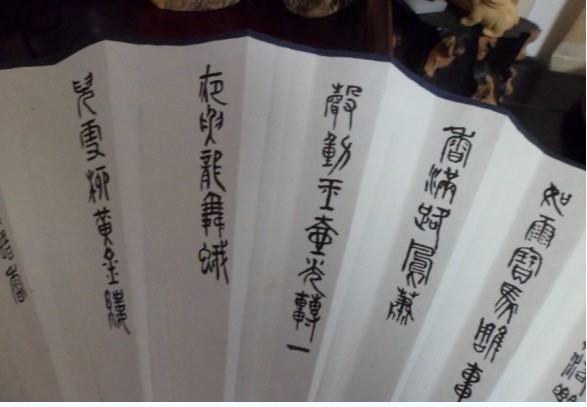 如雨寶馬雕車
香滿路鳳簫
聲動玉壺光轉一
夜魚龍舞蛾
兒雪柳黃金縷